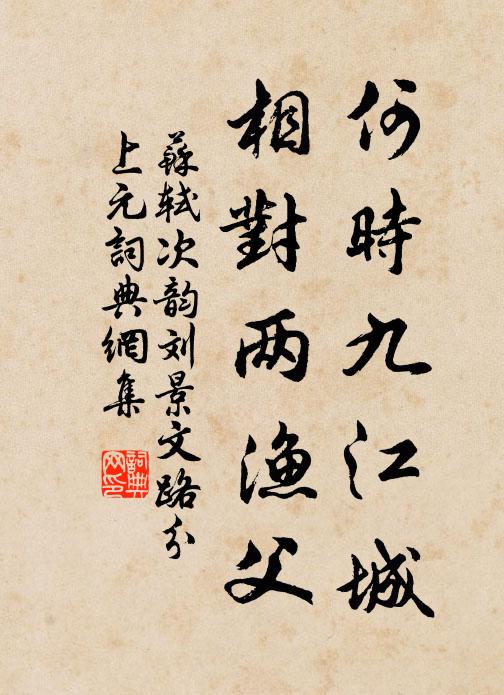 何時九江城
相對两漁父
蘇軾次韵刘景文路分
上元詞典網集
詞典网印